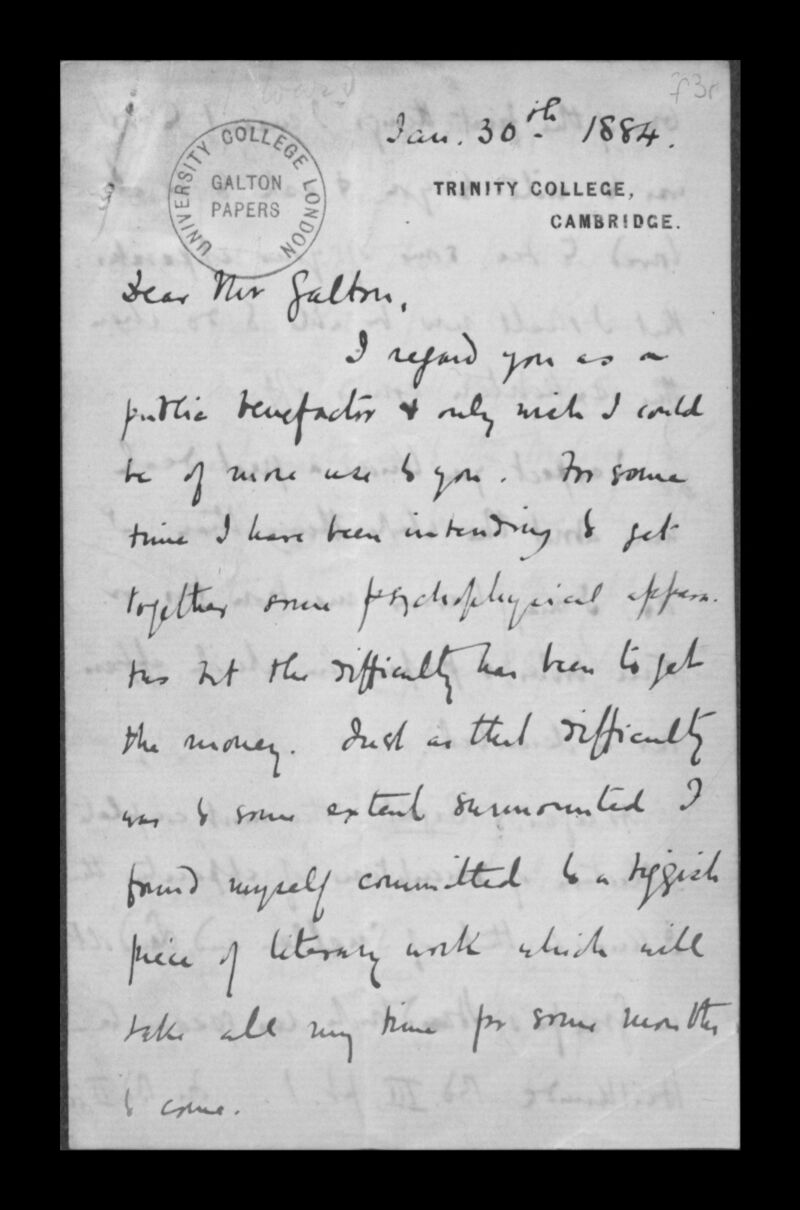 f3r
Ward
Jan. 30th. 1884.
UNIVERSITY COLLEGE LONDON
GALTON
PAPERS
TRINITY COLLEGE,
CAMBRIDGE.
Dear Mr Galton,
I regard you as a
public benefactor & only wish I could
be of more use to you. For some
time I have been intending to get
together some psychophysical appara-
tus but the difficulty has been to get
the money. Just as that difficulty
was to some extent surmounted I
found myself committed to a biggish
piece of literary work which will
take all my time for some months
to come.